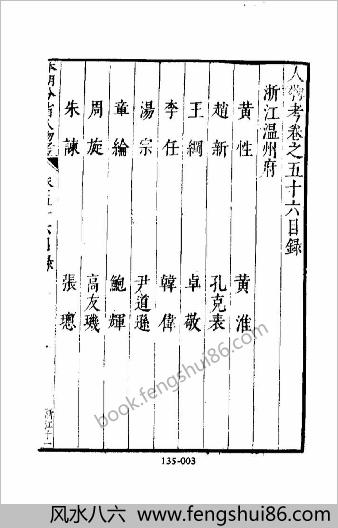 人物考卷之五十六目錄
浙江溫州府
黃性 黃淮
趙新 孔克表
王綱 卓敬
李任 韓偉
湯宗 尹道遜
童綸 鮑輝
周旋 高友璣
朱諫 張璁
本朝分省人物考
浙江十一
book.fengshui86.com
135-003
风水八六 www.fengshui86.com